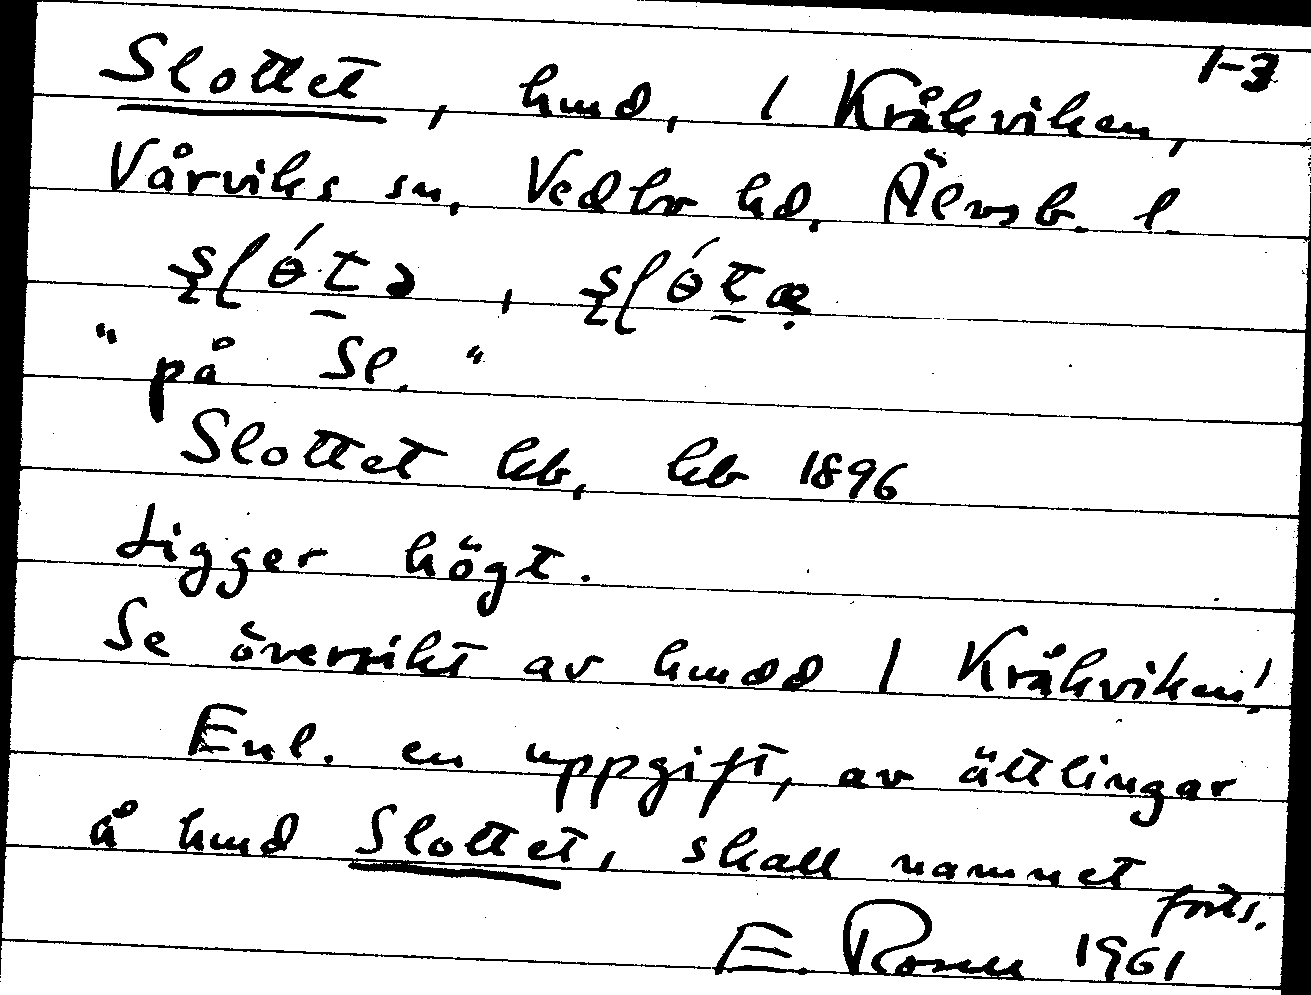 1-3
Slottet, hmd, 1 Kråkviken,
Vårviks sn, Vedbo hd, Älvsb. l.
"på Sl."
Slottet kb, hb 1896
Ligger högt.
Se översikt av hmdd 1 Kråkviken!
Enl. en uppgift, av ättlingar
å hmd Slottet, skall namnet
forts.
E. Rosell 1961